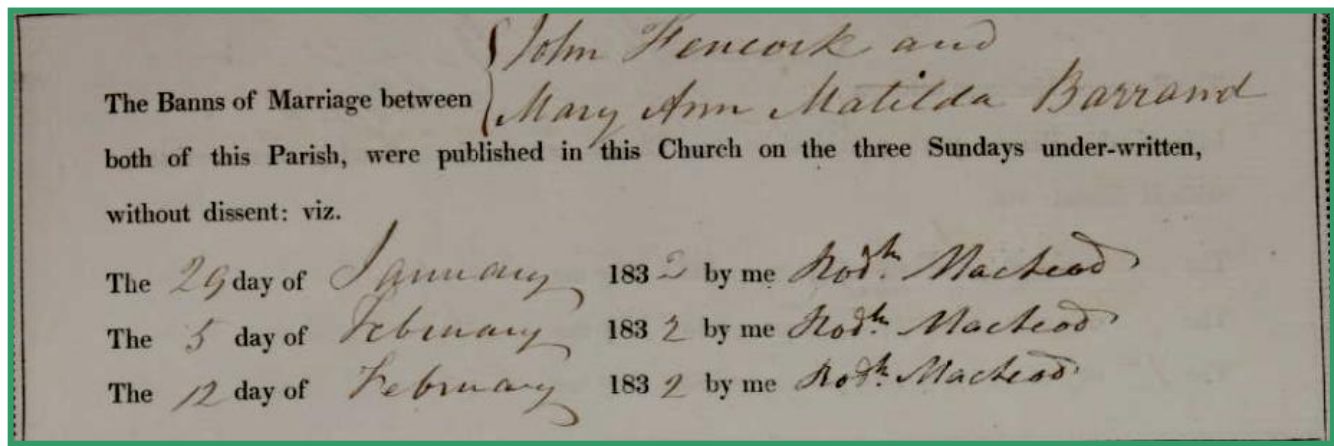 John Hencock and
The Banns of Marriage between Mary Ann Matilda Barrand
both of this Parish, were published in this Church on the three Sundays under-written,
without dissent: viz.
The 29 day of January 1832 by me Rodk. Macleod
The 5 day of February 1832 by me Rodk. Macleod
The 12 day of February 1832 by me Rodk. Macleod